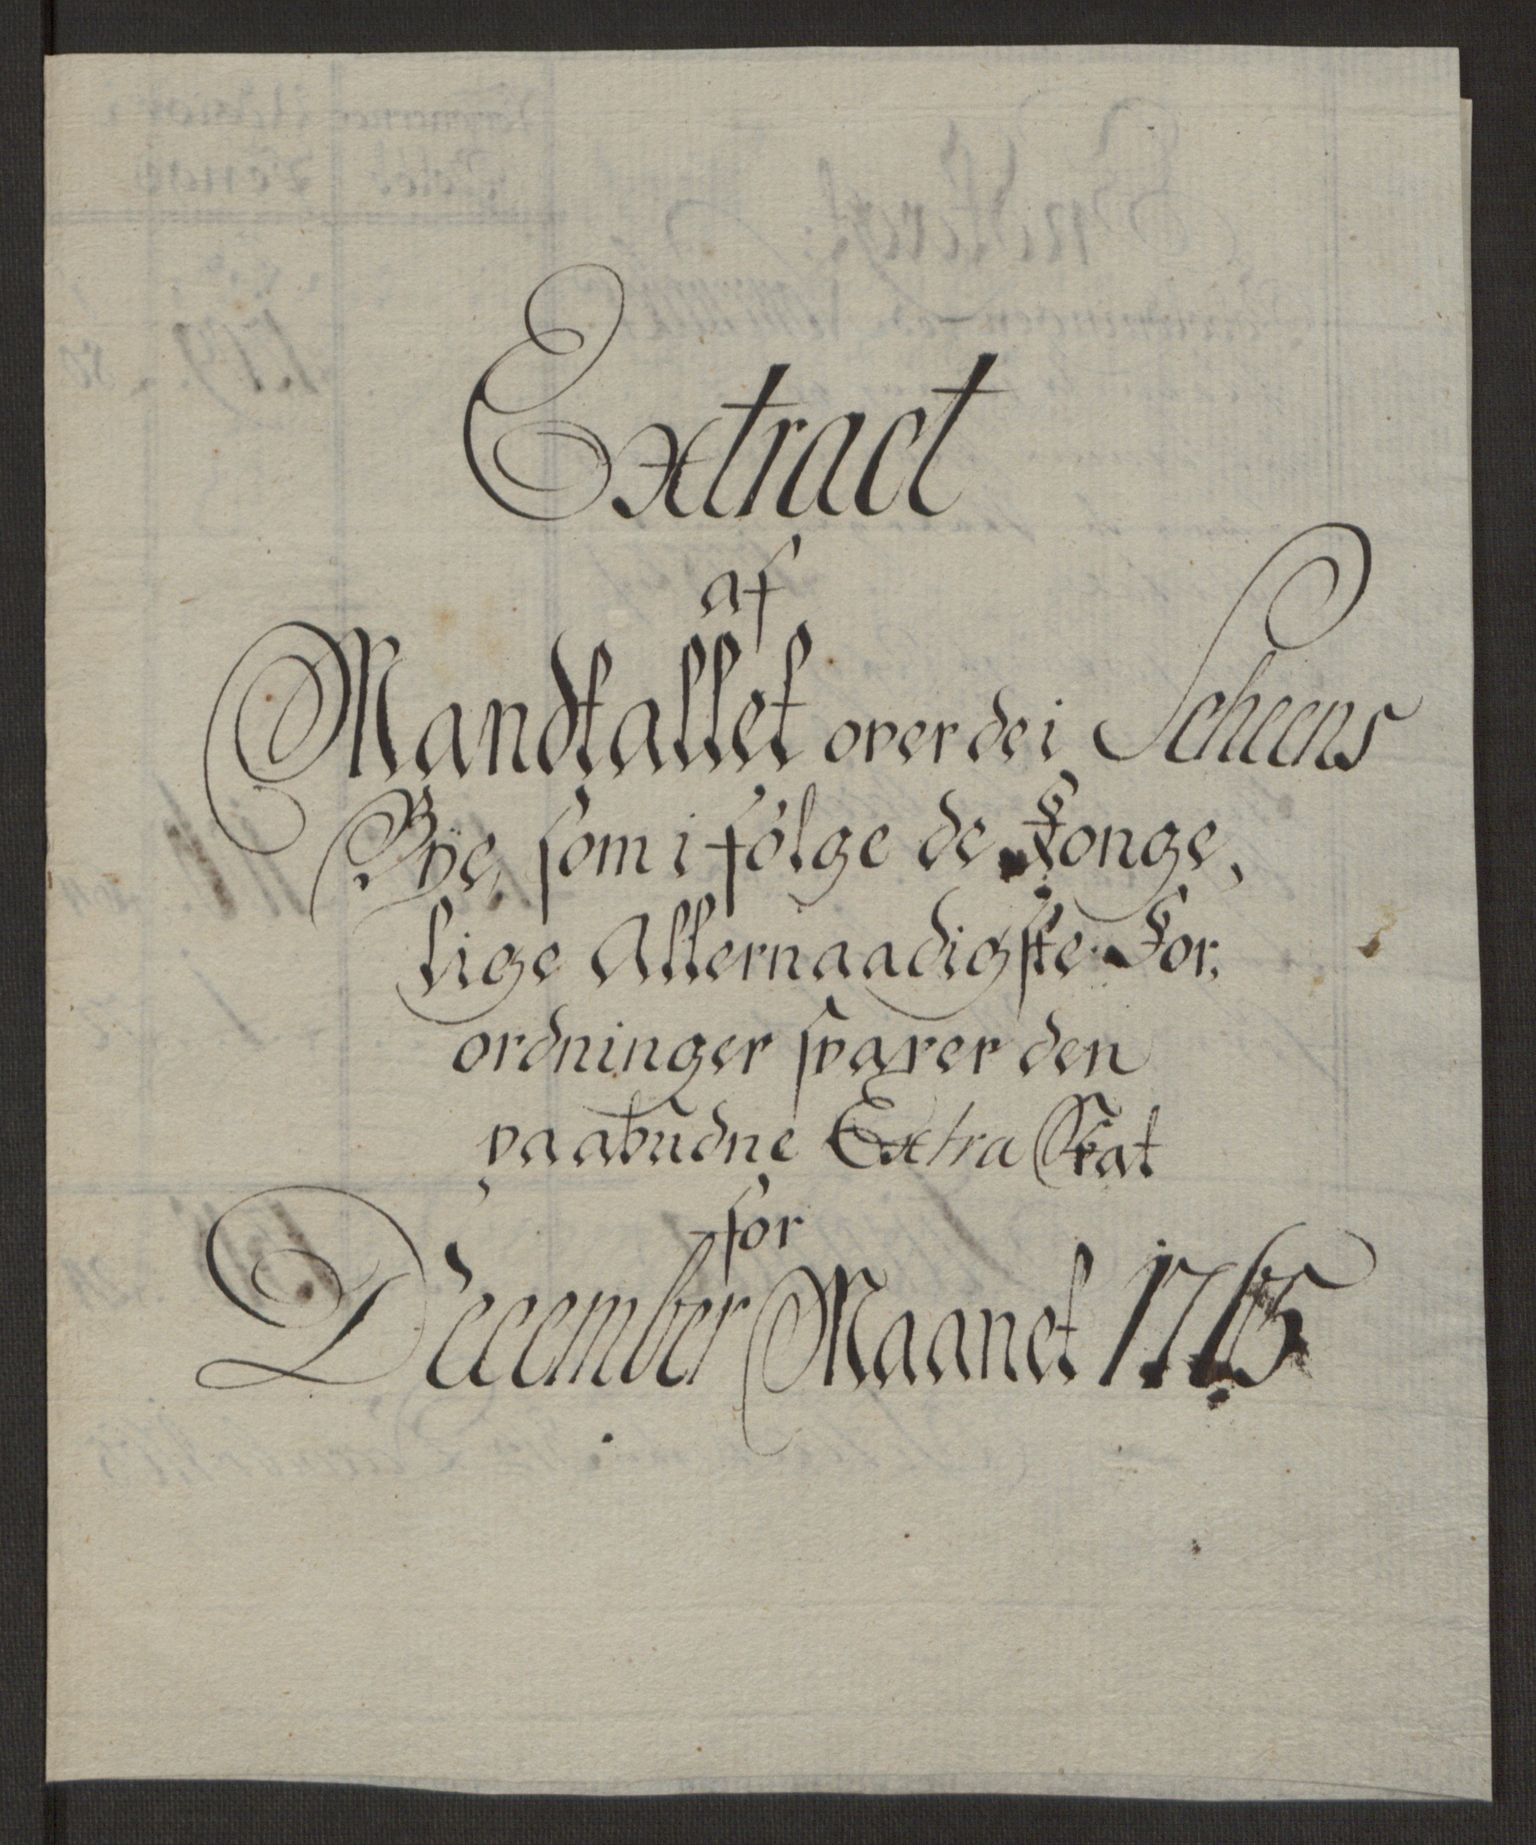 Extract
af
Mandtallet over de i Scheens
Bÿe, som i fólge de Konge,
lige Allernaadigste For,
ordninger svarer den
paabudne Extra Skat
for
December Maanet 1765